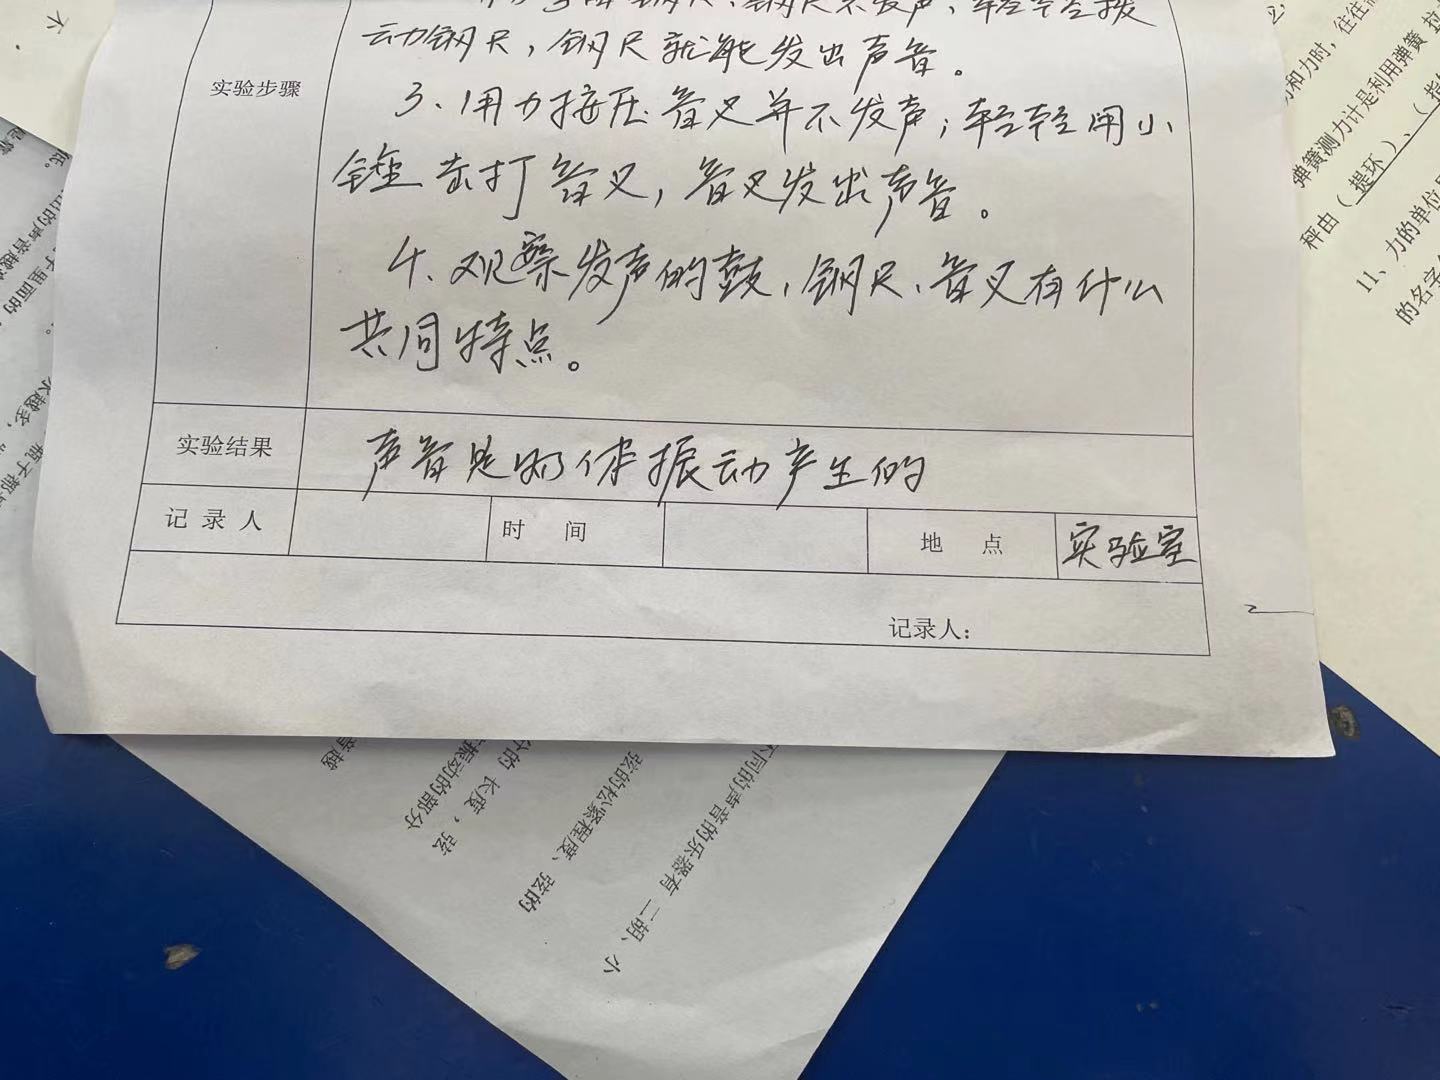 动钢尺，钢尺就能发出声音。
实验步骤
3、用力按压音叉并不发声；轻轻用小
锤击打音叉，音叉发出声音。
4、观察发声的鼓、钢尺、音叉有什么
共同特点。
实验结果
声音是物体振动产生的
记录人
时间
地点
实验室
记录人：
弹簧测力计是利用弹簧
秤由（提环）、（
11、力的单位
和力时，往往
不同的声音的乐器有 二胡、小
弦的松紧程度、弦的
分的 长度，弦
振动的部分
音越